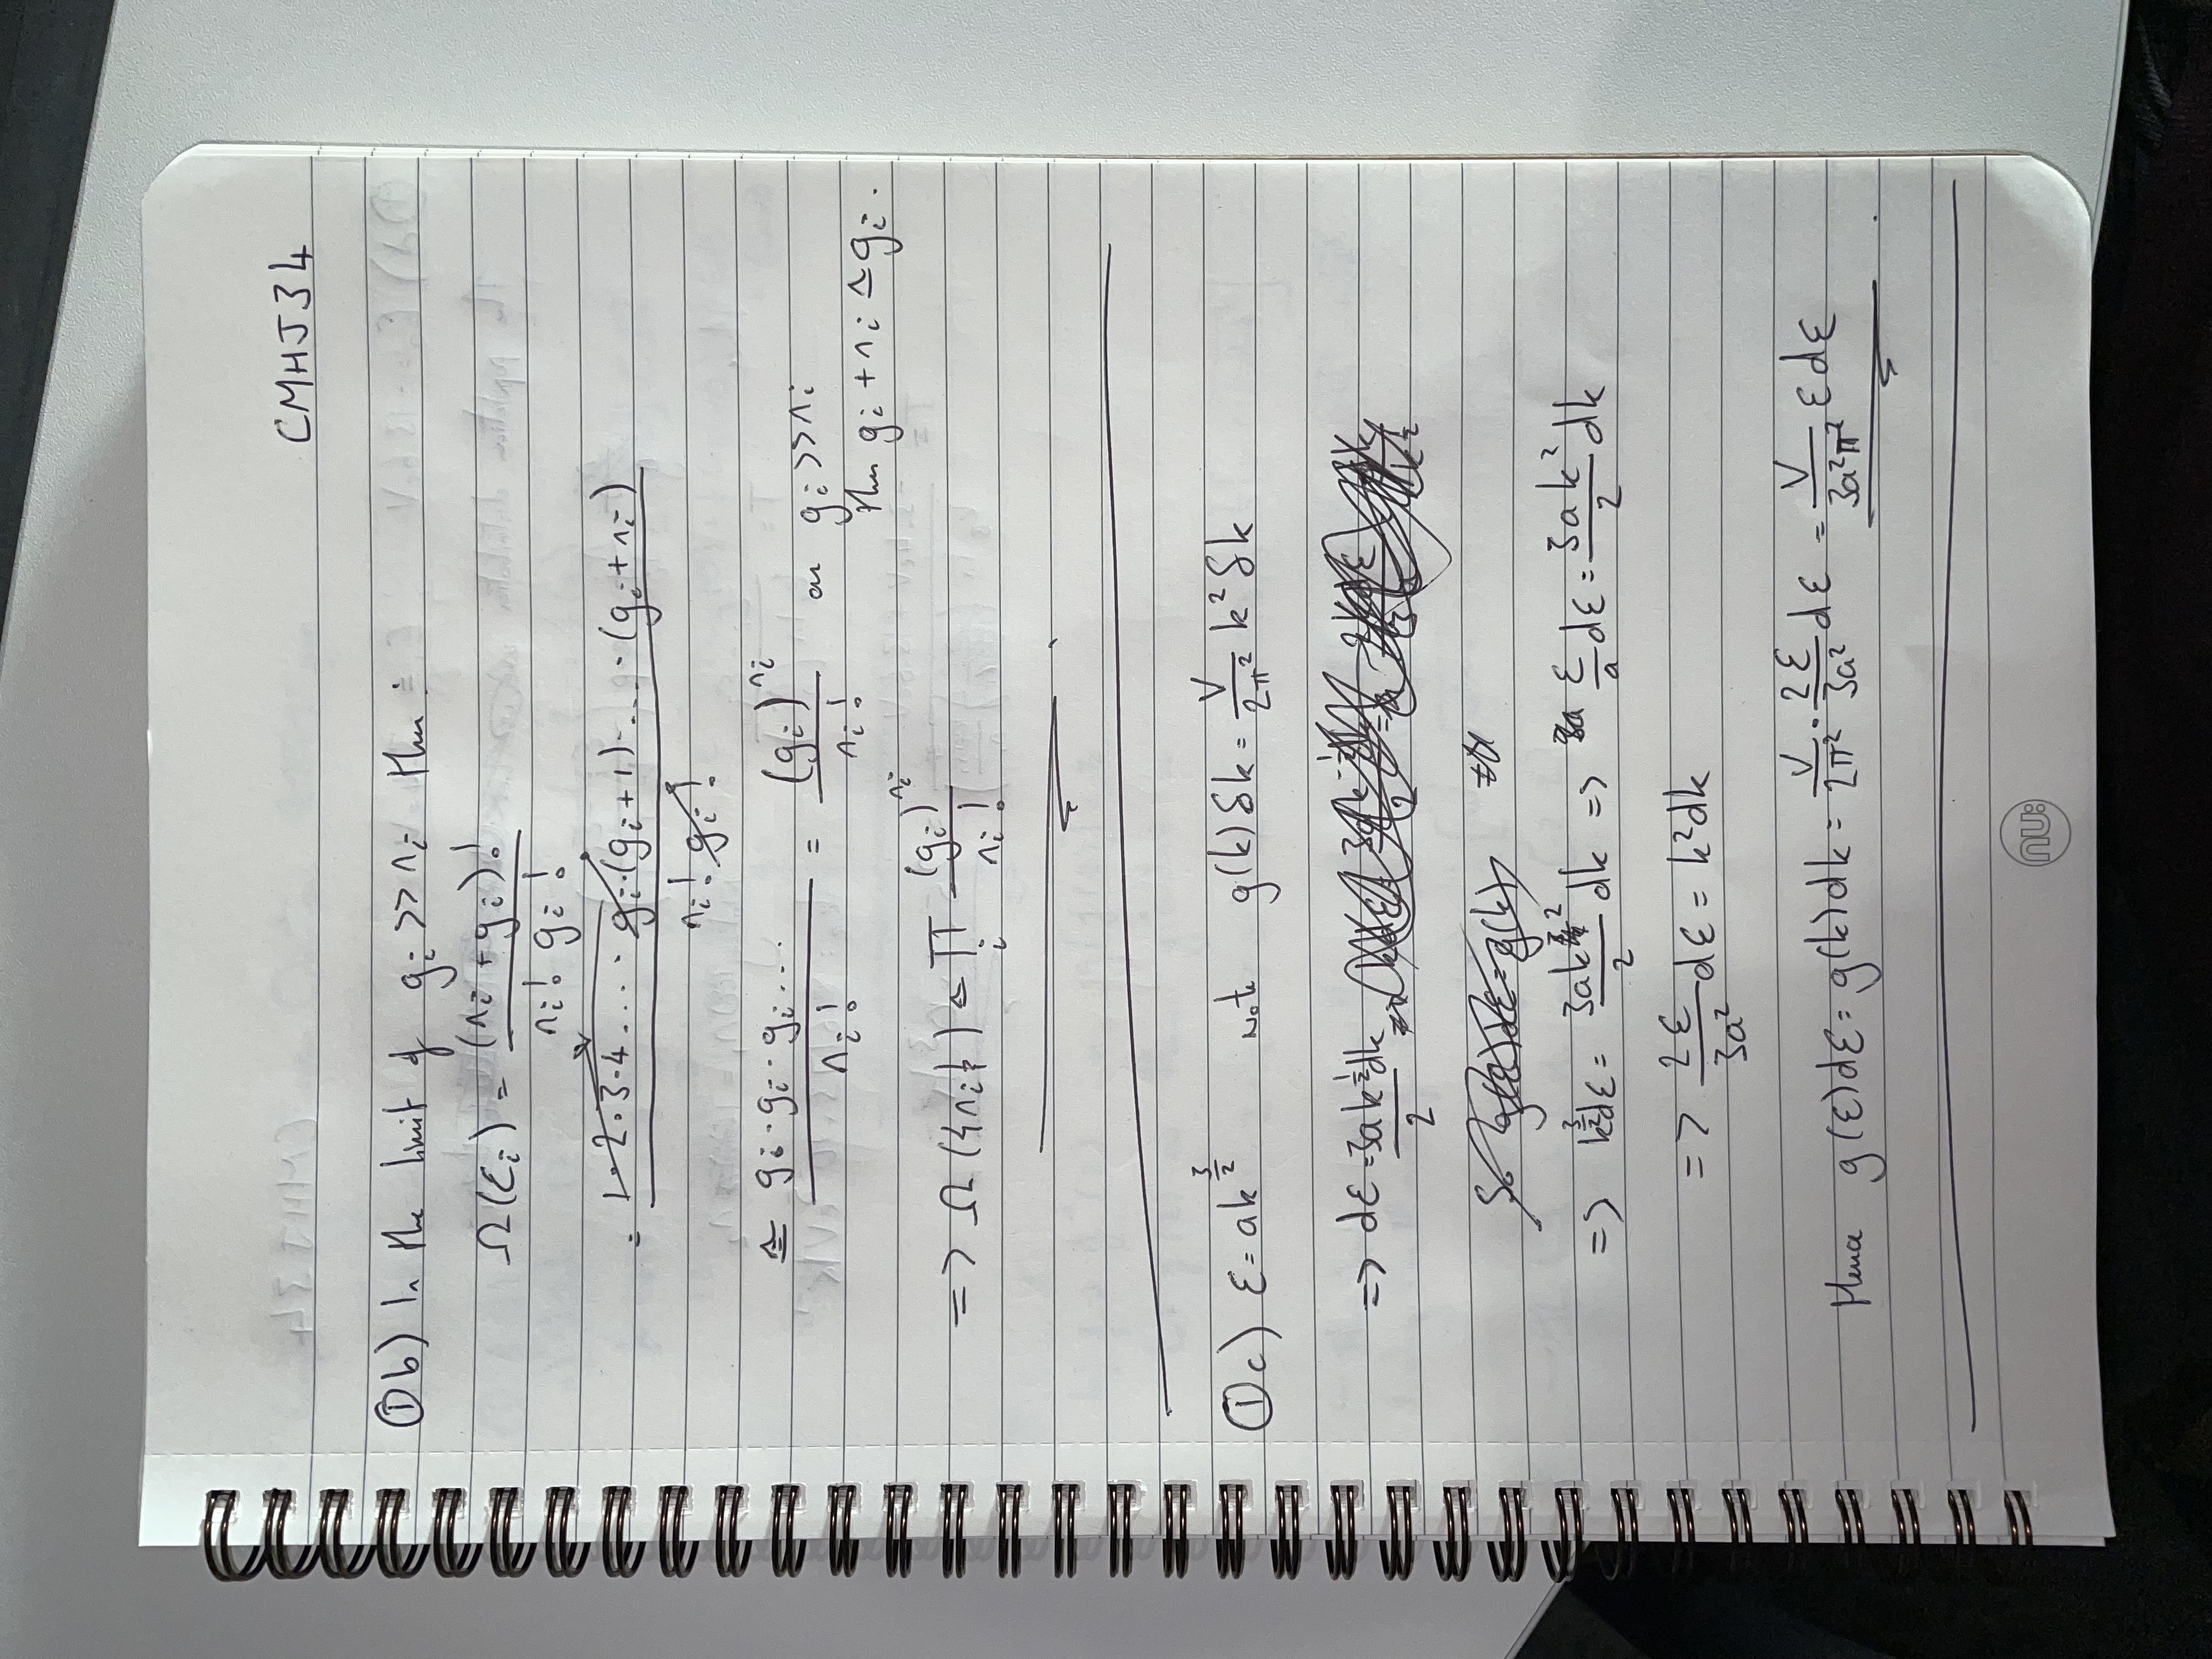 CMHJ34
①b) In the limit of gᵢ >> nᵢ then :
Ω(εᵢ) = (nᵢ + gᵢ)! / nᵢ! gᵢ!
= 1·2·3·4 .... · gᵢ·(gᵢ+1)· .... ·(gᵢ+nᵢ) / nᵢ! gᵢ!
≃ gᵢ·gᵢ·gᵢ... / nᵢ! = (gᵢ)^nᵢ / nᵢ! as gᵢ >> nᵢ
then gᵢ + nᵢ ≃ gᵢ.
=> Ω({nᵢ}) ≃ ∏ᵢ (gᵢ)^nᵢ / nᵢ!
①c) ε = ak^(3/2) Note g(k)δk = V/2π² k² δk
=> dε = 3ak^(1/2)dk / 2
So g(ε)dε = g(k)
=> k^(3/2)dε = 3ak²/2 dk => ε/a dε = 3ak²/2 dk
=> 2ε/3a² dε = k²dk
Hence g(ε)dε = g(k)dk = V/2π² · 2ε/3a² dε = V/3a²π² ε dε
nu: